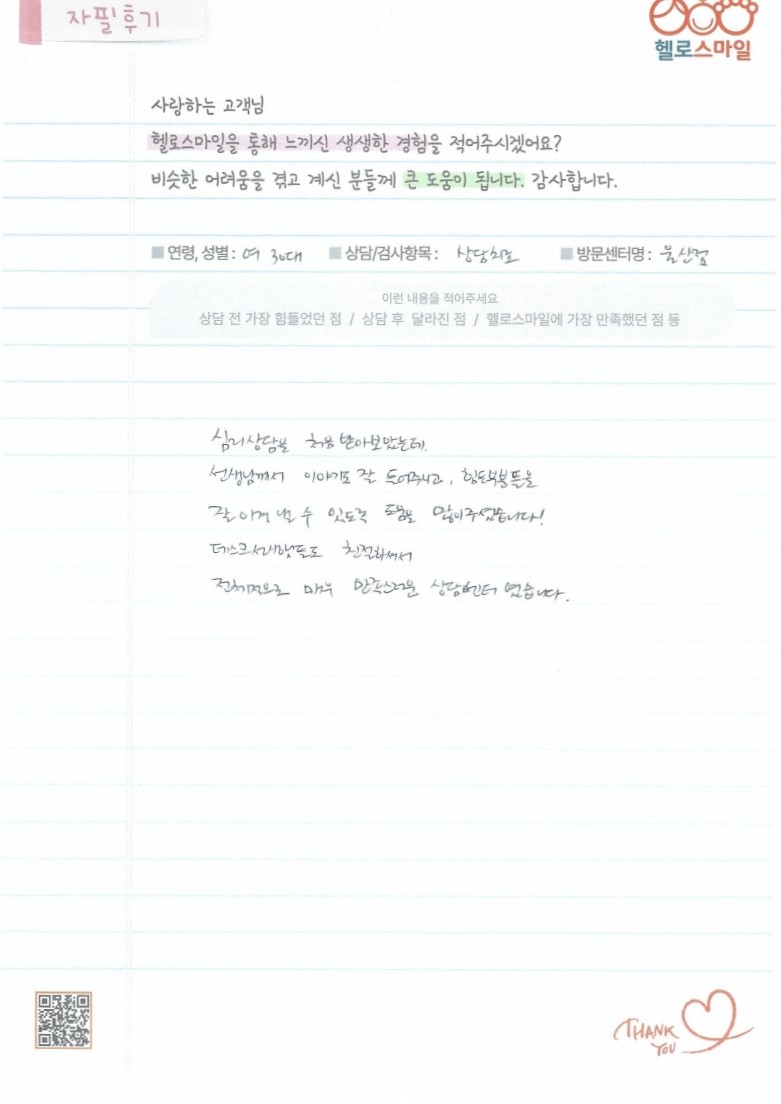 자필후기
헬로스마일
사랑하는 고객님
헬로스마일을 통해 느끼신 생생한 경험을 적어주시겠어요?
비슷한 어려움을 겪고 계신 분들께 큰 도움이 됩니다. 감사합니다.
연령, 성별 : 여 30대 상담/검사항목 : 상담치료 방문센터명 : 울산점
이런 내용을 적어주세요
상담 전 가장 힘들었던 점 / 상담 후 달라진 점 / 헬로스마일에 가장 만족했던 점 등
심리상담을 처음 받아보았는데,
선생님께서 이야기도 잘 들어주시고, 힘든부분들을
잘 이겨 낼 수 있도록 도움을 많이주셨습니다!
데스크선생님들도 친절하셔서
전체적으로 매우 만족스러운 상담센터 였습니다.
THANK
YOU